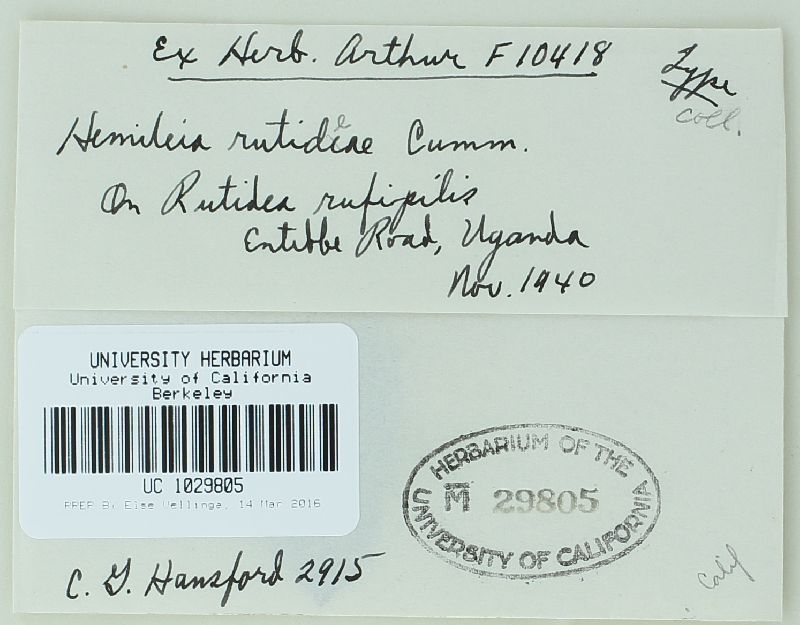 Ex Herb. Arthur F10418
Type
coll.
Hemileia rutideae Cumm.
On Rutidea rufipilis
Entebbe Road, Uganda
Nov. 1940
UNIVERSITY HERBARIUM
University of California
Berkeley
UC 1029805
PREP By Else Vellinga, 14 Mar 2016
HERBARIUM OF THE
M 29805
UNIVERSITY OF CALIFORNIA
C. G. Hansford 2915
Calif